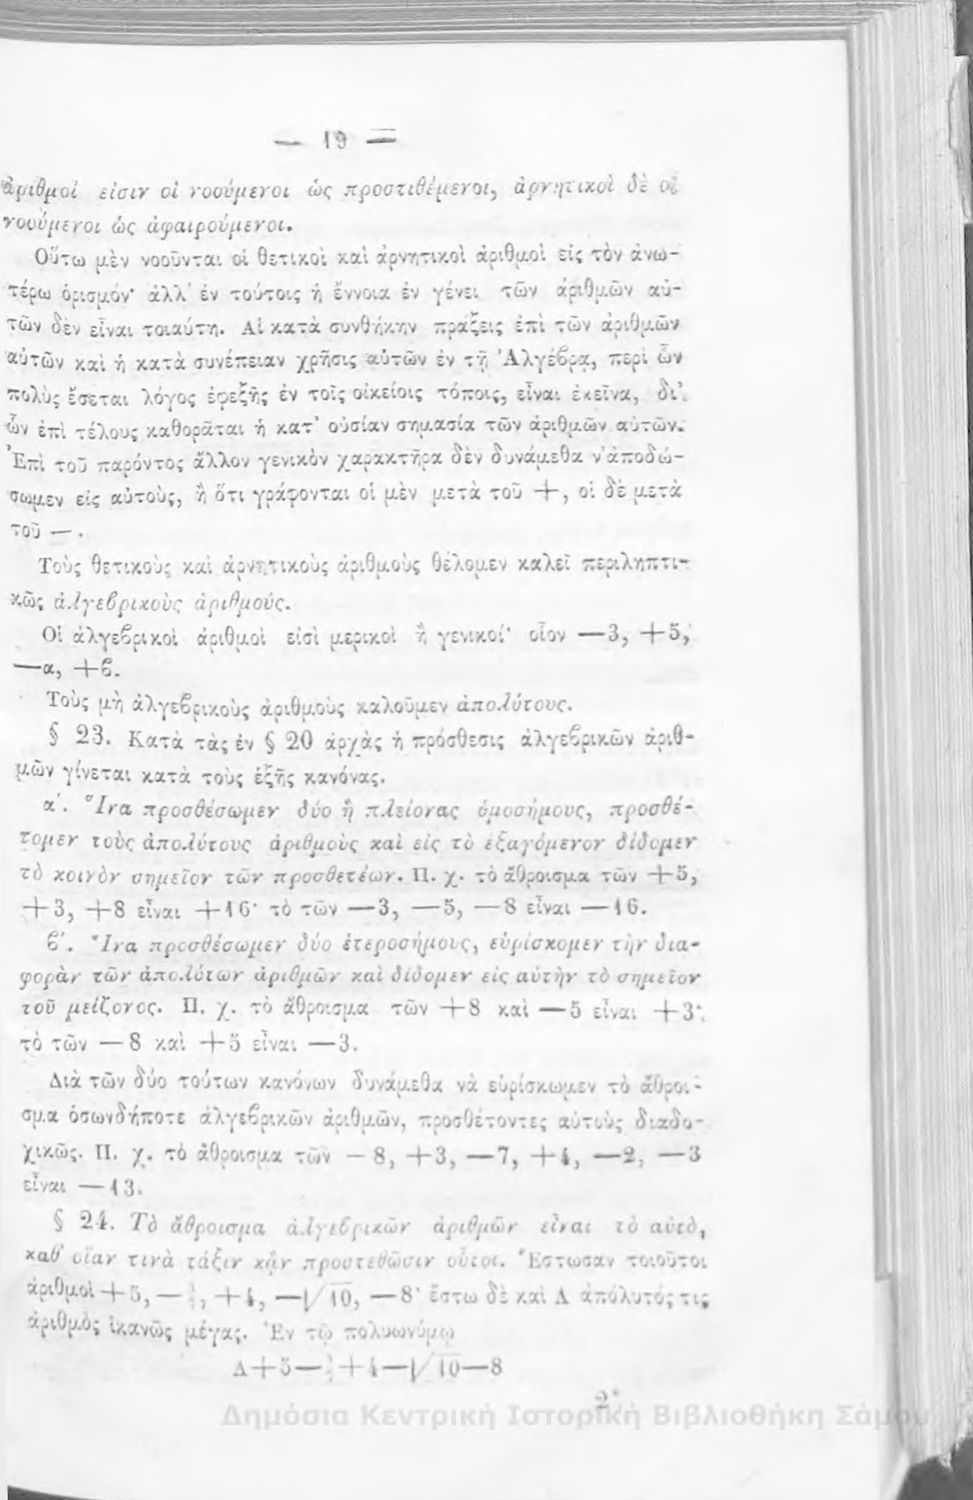 — 19 —
ἀριθμοί εἰσιν οἱ νοούμενοι ὡς προστιθέμενοι, ἀρνητικοὶ δὲ οἱ
νοούμενοι ὡς ἀφαιρούμενοι.
Οὕτω μὲν νοοῦνται οἱ θετικοὶ καὶ ἀρνητικοὶ ἀριθμοὶ εἰς τὸν ἀνω-
τέρω ὁρισμόν· ἀλλ' ἐν τούτοις ἡ ἔννοια ἐν γένει τῶν ἀριθμῶν αὐ-
τῶν δὲν εἶναι τοιαύτη. Αἱ κατὰ συνθήκην πράξεις ἐπὶ τῶν ἀριθμῶν
αὐτῶν καὶ ἡ κατὰ συνέπειαν χρῆσις αὐτῶν ἐν τῇ Ἀλγέβρᾳ, περὶ ὧν
πολὺς ἔσεται λόγος ἐφεξῆς ἐν τοῖς οἰκείοις τόποις, εἶναι ἐκεῖνα, δι'
ὧν ἐπὶ τέλους καθορᾶται ἡ κατ' οὐσίαν σημασία τῶν ἀριθμῶν αὐτῶν.
Ἐπὶ τοῦ παρόντος ἄλλον γενικὸν χαρακτῆρα δὲν δυνάμεθα ν' ἀποδώ-
σωμεν εἰς αὐτοὺς, ἢ ὅτι γράφονται οἱ μὲν μετὰ τοῦ +, οἱ δὲ μετὰ
τοῦ —.
Τοὺς θετικοὺς καὶ ἀρνητικοὺς ἀριθμοὺς θέλομεν καλεῖ περιληπτι-
κῶς ἀλγεβρικοὺς ἀριθμούς.
Οἱ ἀλγεβρικοὶ ἀριθμοὶ εἰσὶ μερικοὶ ἢ γενικοί· οἷον —3, +5,
—α, +β.
Τοὺς μὴ ἀλγεβρικοὺς ἀριθμοὺς καλοῦμεν ἀπολύτους.
§ 23. Κατὰ τὰς ἐν § 20 ἀρχὰς ἡ πρόσθεσις ἀλγεβρικῶν ἀριθ-
μῶν γίνεται κατὰ τοὺς ἑξῆς κανόνας.
α'. Ἵνα προσθέσωμεν δύο ἢ πλείονας ὁμοσήμους, προσθέ-
τομεν τοὺς ἀπολύτους ἀριθμοὺς καὶ εἰς τὸ ἐξαγόμενον δίδομεν
τὸ κοινὸν σημεῖον τῶν προσθετέων. Π. χ. τὸ ἄθροισμα τῶν +5,
+3, +8 εἶναι +16· τὸ τῶν —3, —5, —8 εἶναι —16.
β'. Ἵνα προσθέσωμεν δύο ἑτεροσήμους, εὑρίσκομεν τὴν δια-
φορὰν τῶν ἀπολύτων ἀριθμῶν καὶ δίδομεν εἰς αὐτὴν τὸ σημεῖον
τοῦ μείζονος. Π. χ. τὸ ἄθροισμα τῶν +8 καὶ —5 εἶναι +3·
τὸ τῶν —8 καὶ +5 εἶναι —3.
Διὰ τῶν δύο τούτων κανόνων δυνάμεθα νὰ εὑρίσκωμεν τὸ ἄθροι-
σμα ὁσωνδήποτε ἀλγεβρικῶν ἀριθμῶν, προσθέτοντες αὐτοὺς διαδο-
χικῶς. Π. χ. τὸ ἄθροισμα τῶν —8, +3, —7, +4, —2, —3
εἶναι —13.
§ 24. Τὸ ἄθροισμα ἀλγεβρικῶν ἀριθμῶν εἶναι τὸ αὐτὸ,
καθ' οἵαν τινὰ τάξιν κἂν προστεθῶσιν οὗτοι. Ἔστωσαν τοιοῦτοι
ἀριθμοὶ +5, —, +4, —√10, —8· ἔστω δὲ καὶ Α ἀπόλυτός τις
ἀριθμὸς ἱκανῶς μέγας. Ἐν τῷ πολυωνύμῳ
Α+5— +4—√10—8
2*
Δημόσια Κεντρική Ιστορική Βιβλιοθήκη Σάμου